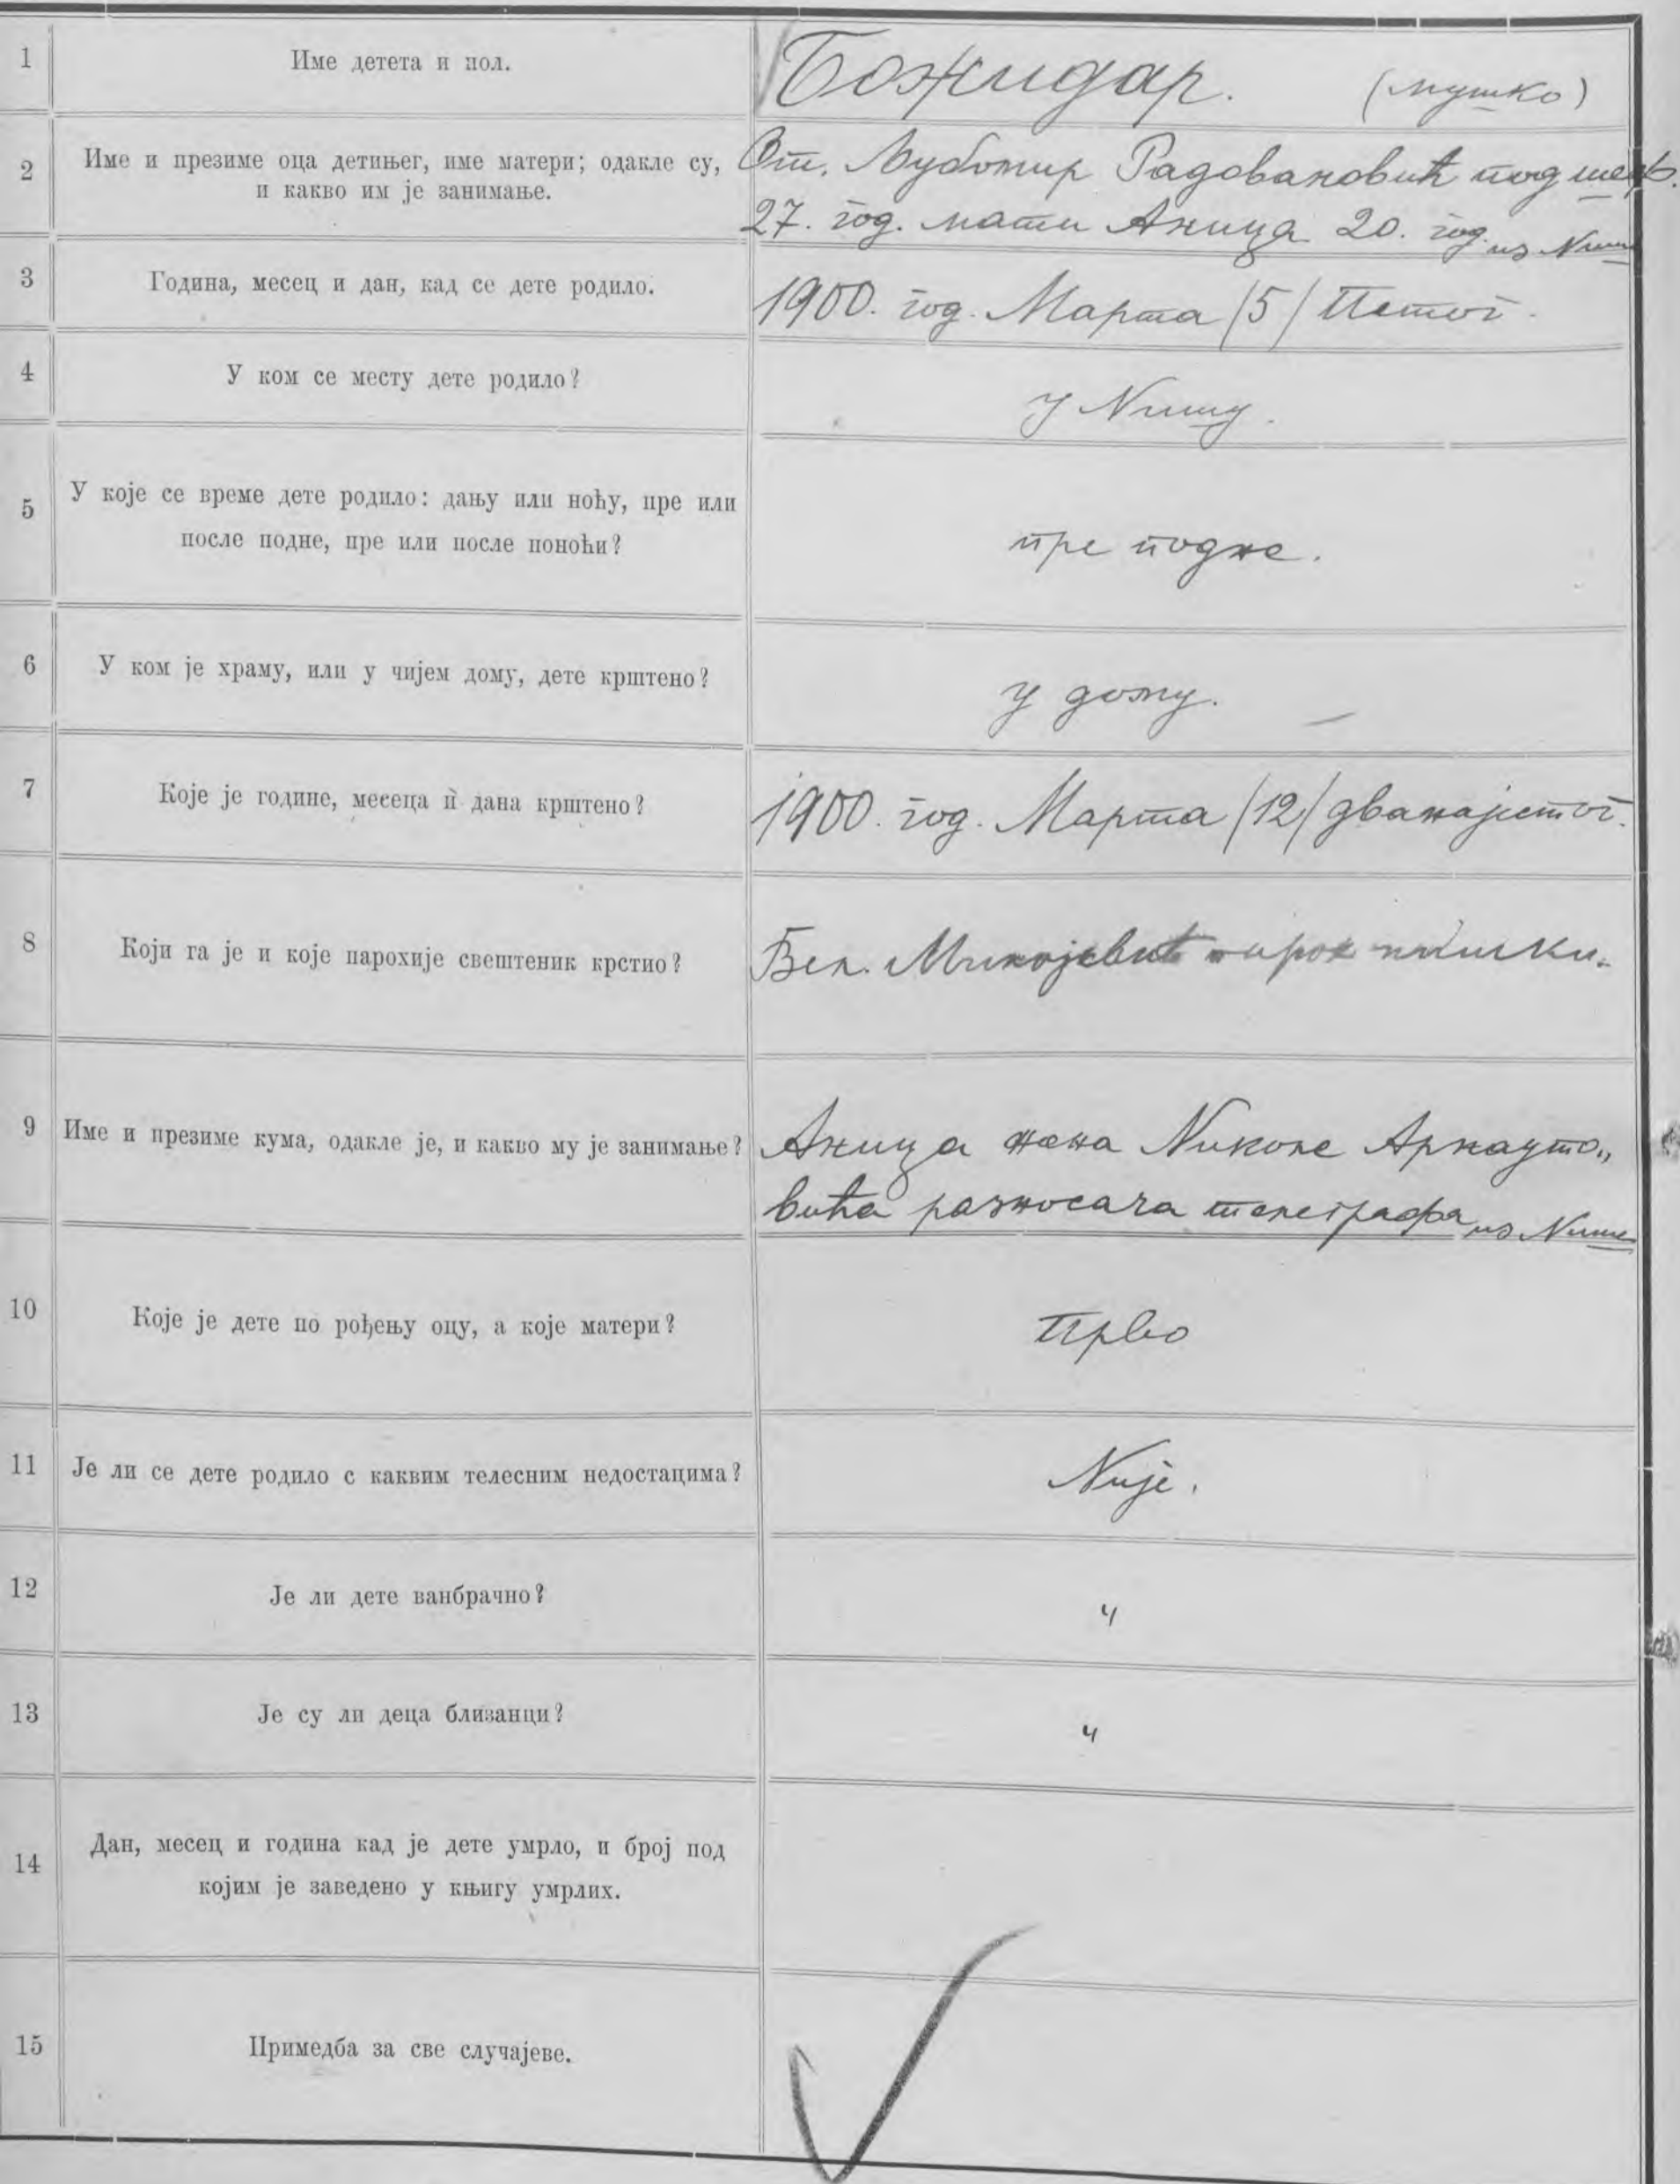 1 Име детета и пол. Божидар. (мушко)
2 Име и презиме оца детињег, име матери; одакле су, От. Љубомир Радовановић под
и какво им је занимање. 27. год. мати Аница 20. год. из Ниша
3 Година, месец и дан, кад се дете родило. 1900. год. Марта /5/ Петог.
4 У ком се месту дете родило? у Нишу.
5 У које се време дете родило: дању или ноћу, пре или
после подне, пре или после поноћи? пре подне.
6 У ком је храму, или у чијем дому, дете крштено? у дому.
7 Које је године, месеца и дана крштено? 1900. год. Марта /12/ дванајстог.
8 Који га је и које парохије свештеник крстио? Вел.
9 Име и презиме кума, одакле је, и какво му је занимање? Аница жена Николе Арнауто„
вића разносача телеграфа из Ниша
10 Које је дете по рођењу оцу, а које матери? Прво
11 Је ли се дете родило с каквим телесним недостацима? Није.
12 Је ли дете ванбрачно? "
13 Је су ли деца близанци? "
14 Дан, месец и година кад је дете умрло, и број под
којим је заведено у књигу умрлих.
15 Примедба за све случајеве.